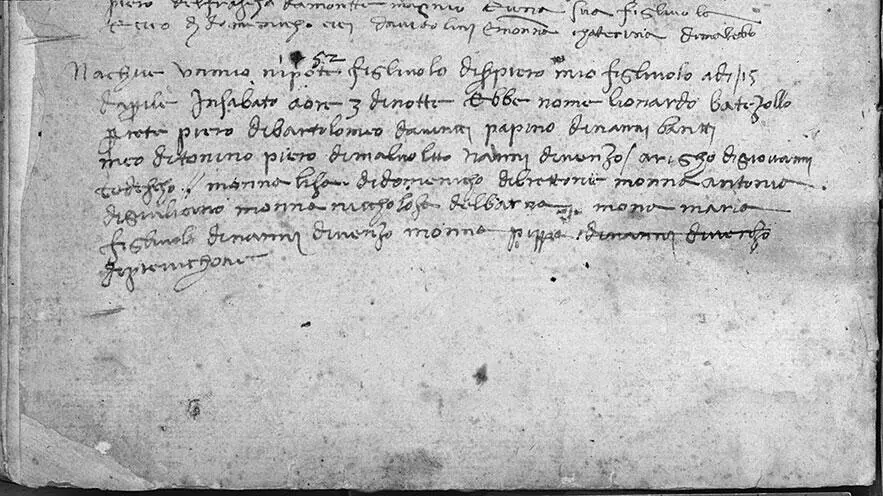 piero
di domenicho monna chaterina
52
Nachue un mio nipote figliuolo di s piero mio figliuolo adi 15
daprile in sabato a ore 3 di notte ebbe nome lionardo batezollo
prete piero di bartolomeo da vinci papino di nanni banti
meo di tonino piero di malvolto nanni di venzo / arigho di giovanni
tedescho // monna lisa di domenicho di brettone monna antonia
di giuliano monna niccholosa del barna mona maria
figliuola di nanni di venzo monna pippa di nanni di venzo
di previchone